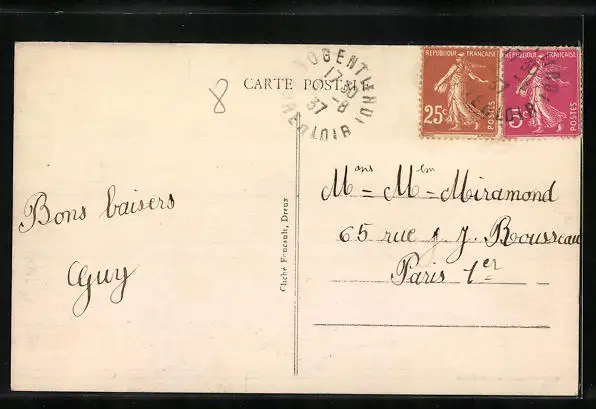 CARTE POSTALE
8
NOGENT LE ROI
17 30
-8
37
EURE-ET-LOIR
REPUBLIQUE FRANÇAISE
25c
POSTES
REPUBLIQUE FRANÇAISE
5c
POSTES
Bons baisers
Guy
Cliché Foucault, Dreux
65 rue J. J. Rousseau
Paris 1er